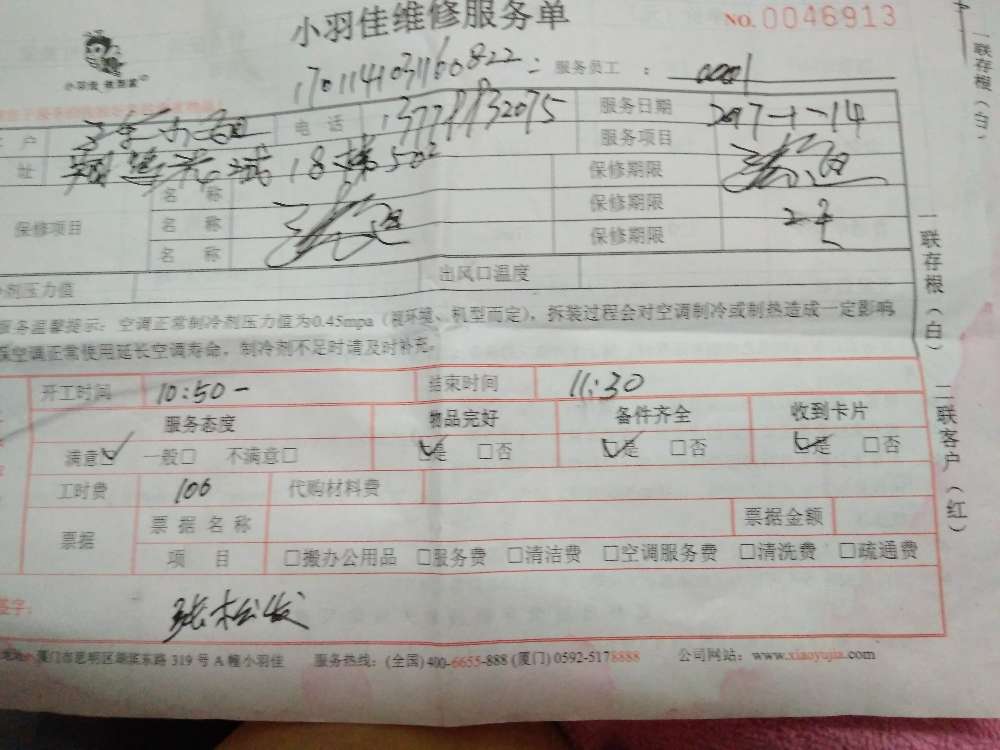 小羽佳维修服务单
NO.0046913
1701141031160822
服务员工：0001
户
电话 13779932075
服务日期 2017-1-14
服务项目
址 18栋502
保修项目
名称
保修期限
名称
保修期限
名称
保修期限
剂压力值
出风口温度
服务温馨提示：空调正常制冷剂压力值为0.45mpa（视环境、机型而定），拆装过程会对空调制冷或制热造成一定影响
保空调正常使用延长空调寿命，制冷剂不足时请及时补充。
开工时间 10:50-
结束时间 11:30
服务态度
物品完好
备件齐全
收到卡片
满意☑ 一般□ 不满意□
☑是 □否
☑是 □否
☑是 □否
工时费 100
代购材料费
票据
票据名称
票据金额
项目
□搬办公用品 □服务费 □清洁费 □空调服务费 □清洗费 □疏通费
签字：
张松发
地址：厦门市思明区湖滨东路 319 号 A 幢小羽佳 服务热线：(全国) 400-6655-888 (厦门) 0592-5178888 公司网站：www.xiaoyujia.com
一联存根（白）
一联存根（白） 二联客户（红）